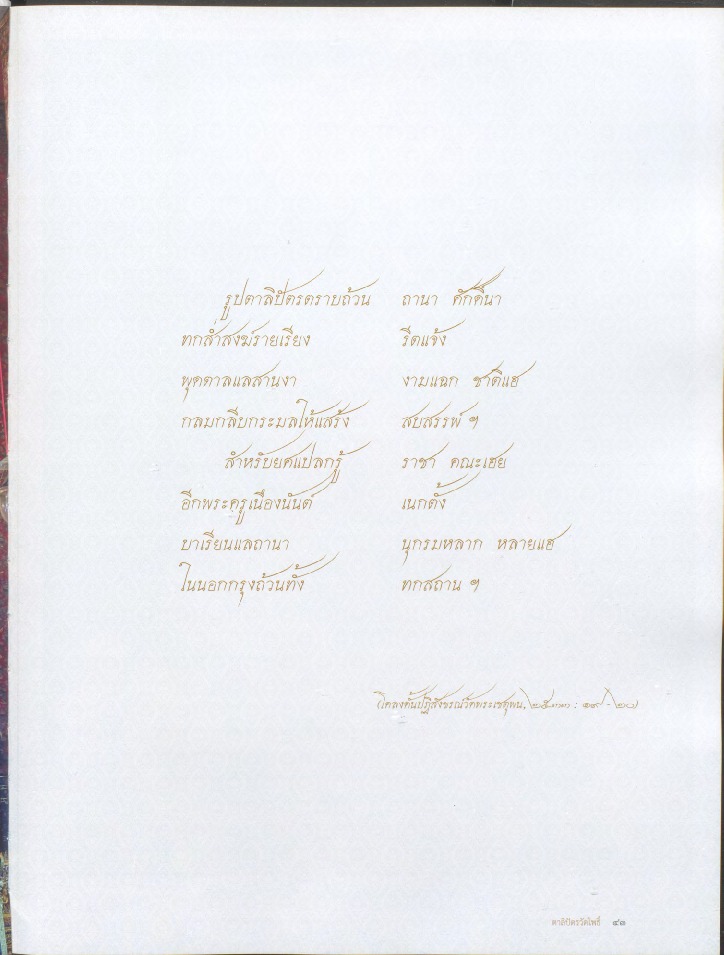 รูปตาลิปัตรตรายถ้วน ถานา ศักดินา
ทกสำสงฆ์รายเรียง รีตแจ้ง
พุดตาลแลสานงา งามแฉก ชาติแฮ
กลมกลีบกระมลให้แสร้ง สบสรรพ์ ฯ
สำหรับยศแปลกรู้ ราชา คณะเฮย
อีกพระครูเนืองนันต์ เนกตั้ง
บาเรียนแลถานา นุกรมหลาก หลายแฮ
ในนอกกรุงถ้วนทั้ง ทกสถาน ฯ
(โคลงดั้นปฏิสังขรณ์วัดพระเชตุพน, : ๑๙ - ๒๐)
ตาลิปัตรวัดโพธิ์ ๔๓